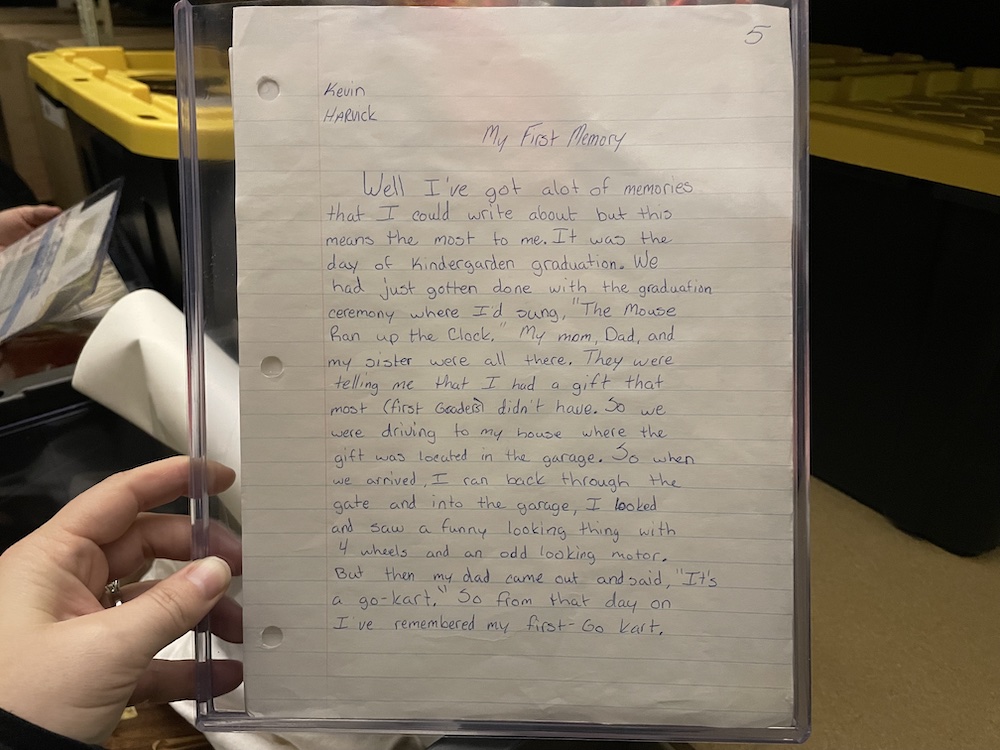 5
Kevin
HARVICK
My First Memory
Well I've got alot of memories
that I could write about but this
means the most to me. It was the
day of Kindergarden graduation. We
had just gotten done with the graduation
ceremony where I'd sung, "The Mouse
Ran up the Clock." My mom, Dad, and
my sister were all there. They were
telling me that I had a gift that
most (first Graders) didn't have. So we
were driving to my house where the
gift was located in the garage. So when
we arrived, I ran back through the
gate and into the garage, I looked
and saw a funny looking thing with
4 wheels and an odd looking motor.
But then my dad came out and said, "It's
a go-kart." So from that day on
I've remembered my first-Go kart.